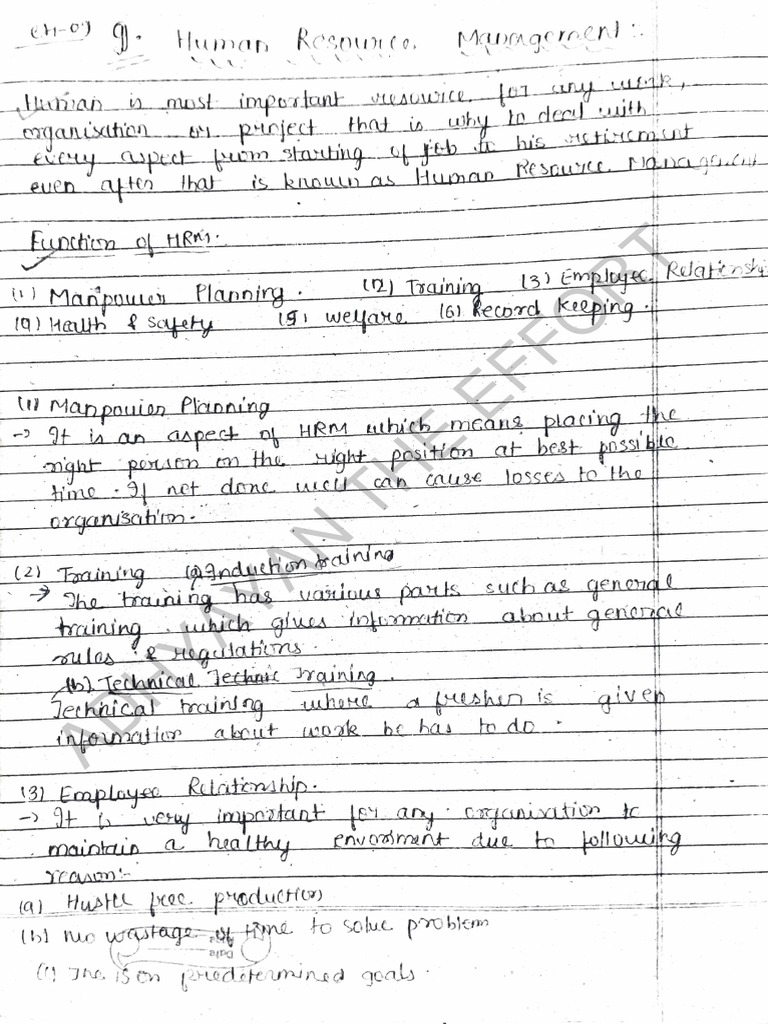 (H-07) 9. Human Resource Management:-
Human is most important resource for any work,
organisation or project that is why to deal with
every aspect from starting of job to his retirement
even after that is known as Human Resource Management
Function of HRM:-
(1) Manpower Planning. (2) Training (3) Employee Relationship
(4) Health & Safety (5) Welfare (6) Record Keeping.
(1) Manpower Planning
→ It is an aspect of HRM which means placing the
right person on the right position at best possible
time. If not done well can cause losses to the
organisation.
(2) Training (a) Induction training
→ The training has various parts such as general
training. which gives information about general
rules & regulations.
(b) Technical Technic Training.
Technical training where a fresher is given
information about work he has to do.
(3) Employee Relationship.
→ It is very important for any organisation to
maintain a healthy enviornment due to following
reason:-
(a) Hustle free production
(b) No wastage of time to solve problem
The is on predetermined goals.
ADHYAYAN THE EFFORT